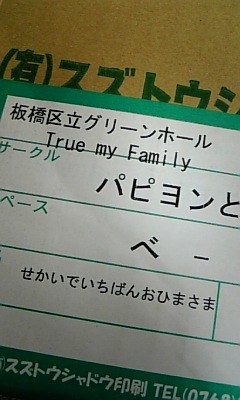 (有)スズトウシャ
板橋区立グリーンホール
True my Family
サークル
パピヨンと
ペース
べ -
せかいでいちばんおひまさま
スズトウシャドウ印刷 TEL(0768)